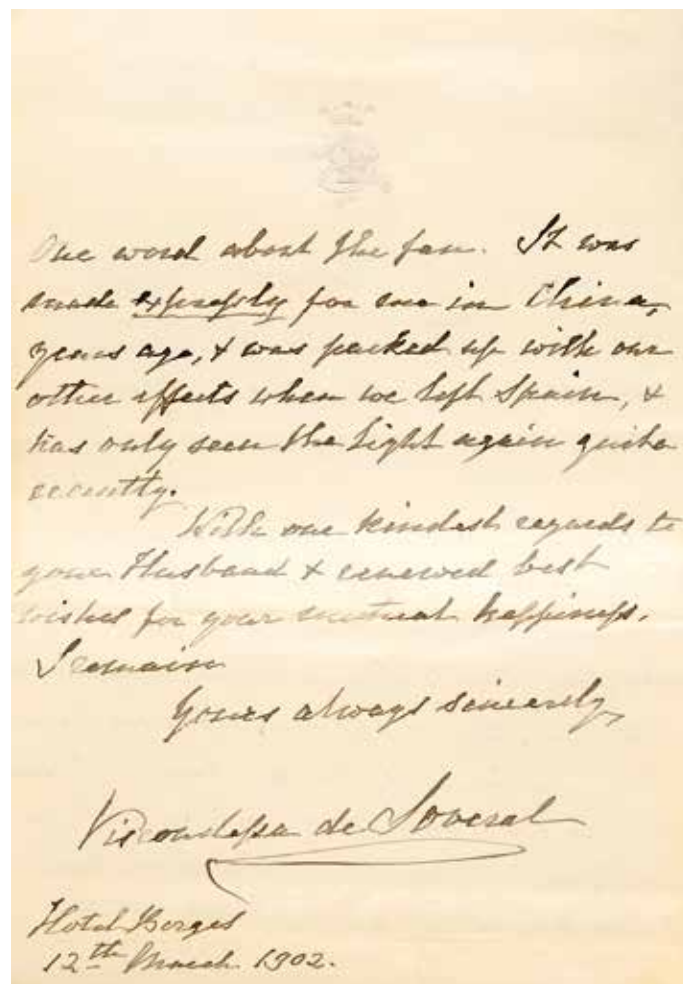 One word about the fan. It was
made expressly for me in China,
years ago, & was packed up with our
other effects when we left Spain, &
has only seen the light again quite
recently.
With our kindest regards to
your Husband & renewed best
wishes for your mutual happiness.
I remain
Yours always sincerely,
Viscondessa de Soveral
Hotel Borges
12th March 1902.